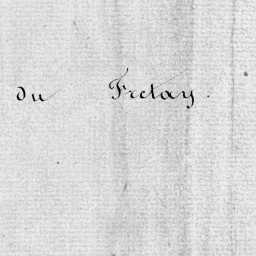 du Fretay.